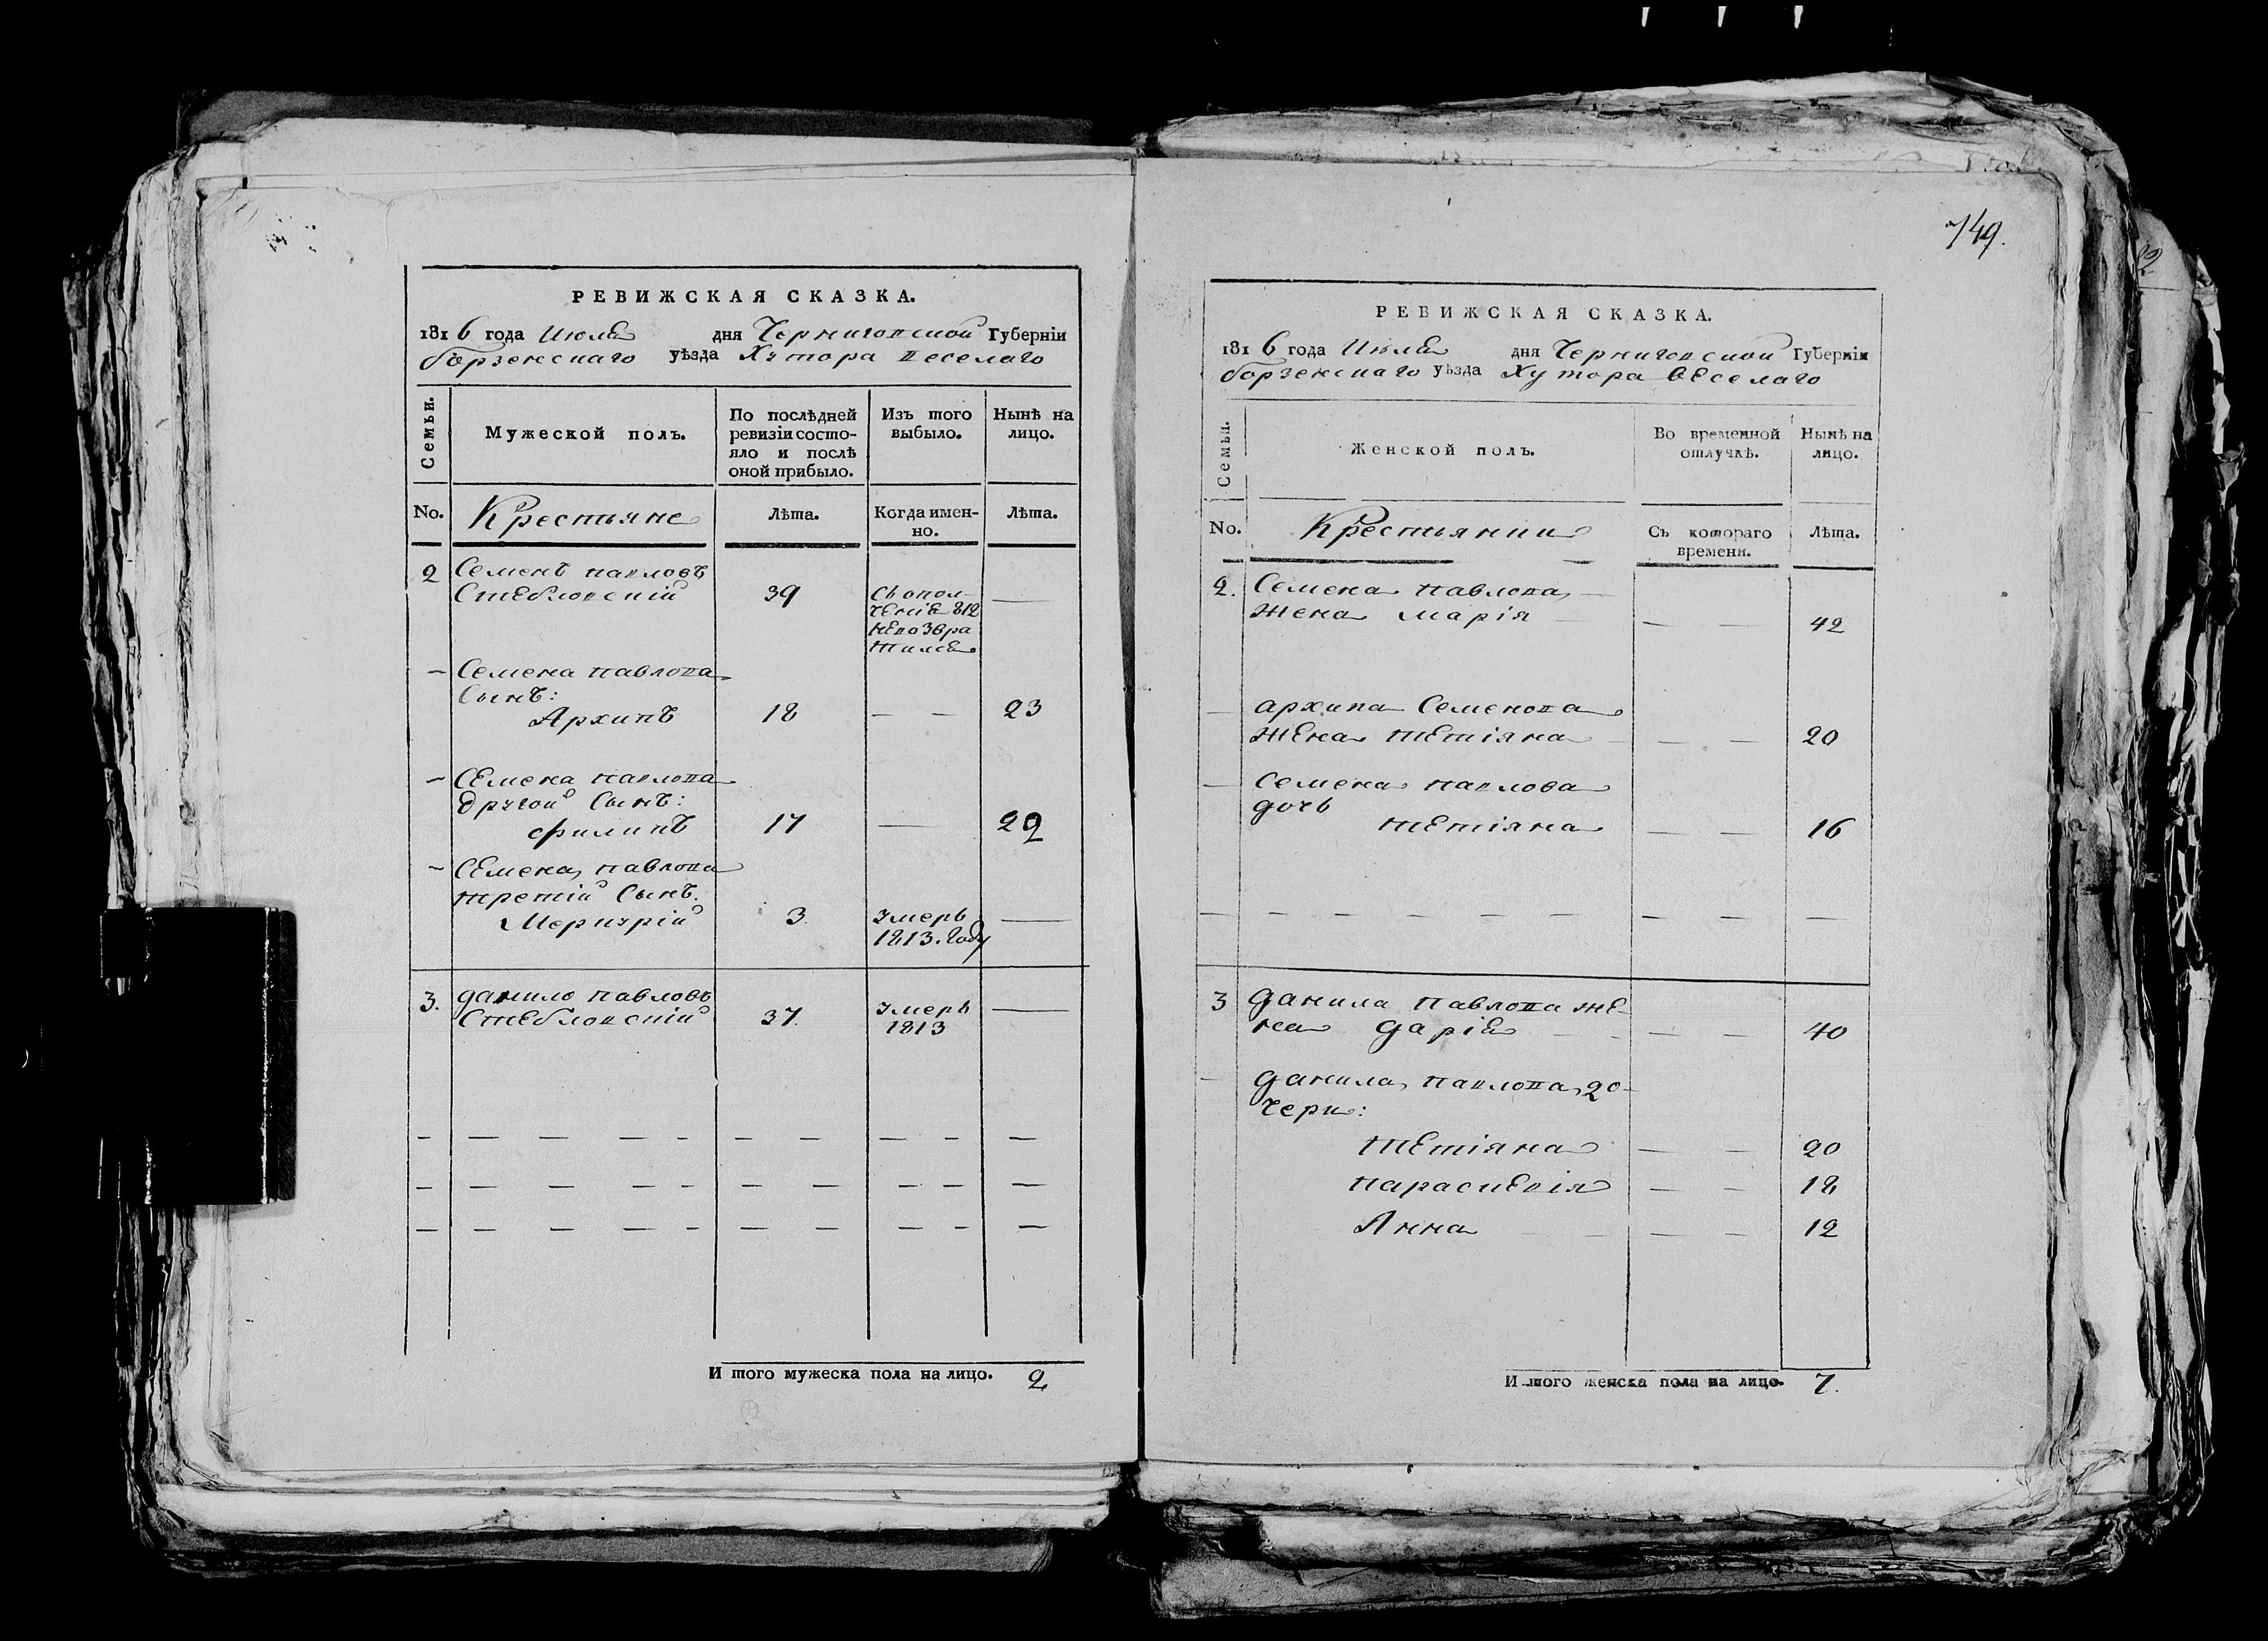 РЕВИЖСКАЯ СКАЗКА.
1816 года Июля дня Черниговской Губерніи
борзенскаго уѣзда Хутора Веселаго
Семьи.
Мужеской полъ.
По послѣдней
ревизіи состо-
яло и послѣ
оной прибыло.
Изъ того
выбыло.
Нынѣ на
лицо.
No.
Крестьяне
Лѣта.
Когда имен-
но.
Лѣта.
2 Семенъ павловъ
Стебловскій 39 —
съ опол-
ченіе 812
невозвра
тился
— Семена павлова
Сынъ:
Архипъ 18 — — 23
— Семена павлова
другой Сынъ:
филипъ 17 — 22
— Семена павлова
третій Сынъ.
Меркурій 3. умеръ —
1813. году
3. данило павловъ умеръ —
Стебловскій 37. 1813
— — — — — — — — — —
— — — — — — — — — —
— — — — — — — — — —
И того мужеска пола на лицо. 2
749.
РЕВИЖСКАЯ СКАЗКА.
1816 года Июля дня Черниговской Губерніи
борзенскаго уѣзда Хутора Веселаго
Семьи.
Женской полъ.
Во временной
отлучкѣ.
Нынѣ на
лицо.
No.
Крестьянки
Съ котораго
времени.
Лѣта.
2. Семена павлова
жена марія — — 42
— архипа Семенова
жена тетіяна — — 20
— Семена павлова
дочь
тетіяна — — 16
— — — — — — — — — —
3 данила павлова же-
на даріе — — 40
— данила павлова до-
чери:
тетіяна — — 20
параскевія — — 18
Анна — — 12
И того женска пола на лицо. 7.